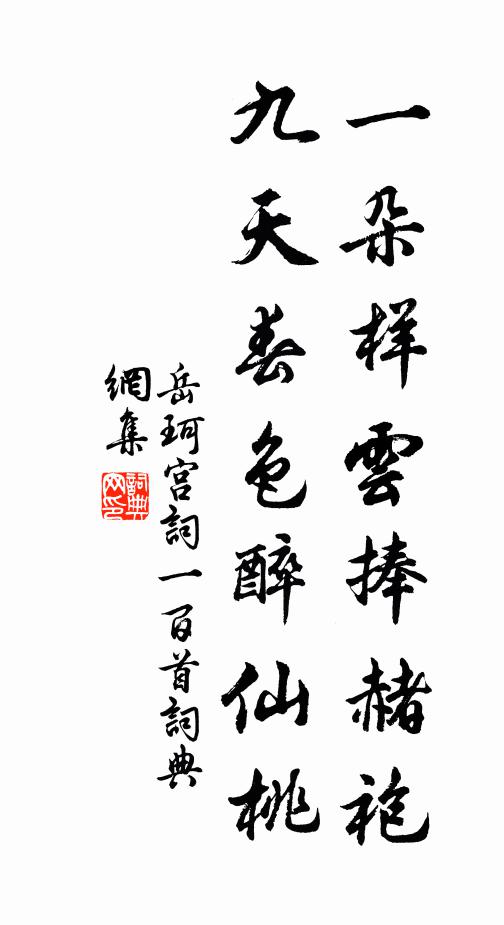 一朵样雲捧赭袍
九天春色醉仙桃
岳珂宫詞一百首詞典
網集
詞典
网印